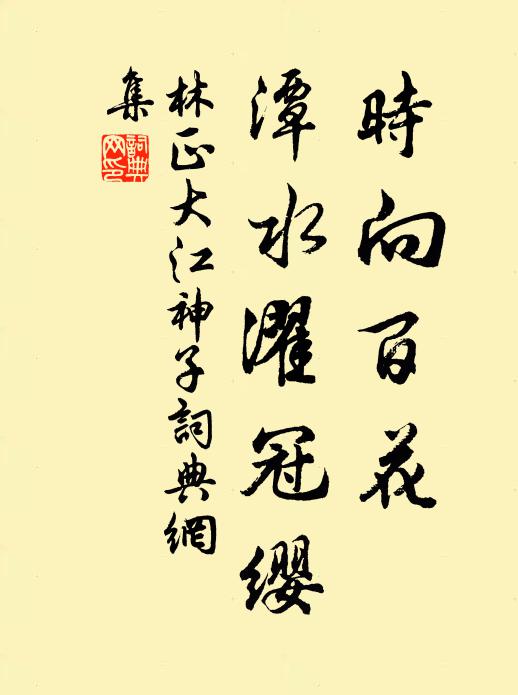 時向百花
潭水濯冠纓
林正大江神子詞典網
集
詞典網印